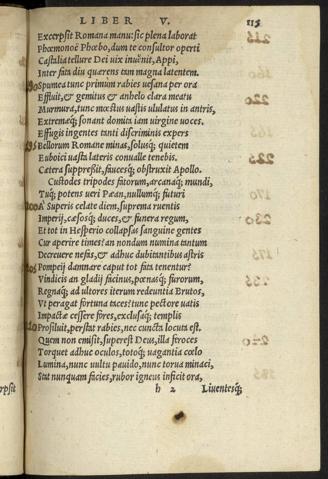 LIBER V. 115
Excerpsit Romana manu: sic plena laborat
Phœmonoë Phœbo, dum te consultor operti
Castalia tellure Dei uix inuēit, Appi,
Inter fata diu quærens tam magna latentem.
190 Spumea tunc primum rabies uesana per ora
Effluit, & gemitus & anhelo clara meatu
Murmura, tunc mœstus uastis ululatus in antris,
Extremæq; sonant domita iam uirgine uoces.
Effugis ingentes tanti discriminis expers
195 Bellorum Romane minas, solusq; quietem
Euboici uasta lateris conualle tenebis.
Cætera suppreßit, faucesq; obstruxit Apollo.
Custodes tripodes fatorum, arcanaq; mundi,
Tuq; potens ueri Pæan, nullumq; futuri
200 A' Superis celate diem, suprema ruentis
Imperij, cæsosq; duces, & funera regum,
Et tot in Hesperio collapsas sanguine gentes
Cur aperire times? an nondum numina tantum
Decreuere nefas, & adhuc dubitantibus astris
205 Pompeij damnare caput tot fata tenentur?
Vindicis an gladij facinus, pœnasq; furorum,
Regnaq; ad ultores iterum redeuntia Brutos,
Vt peragat fortuna taces? tunc pectore uatis
Impactæ cessere fores, exclusaq; templis
210 Prosiluit, perstat rabies, nec cuncta locuta est.
Quem non emisit, superest Deus, illa feroces
Torquet adhuc oculos, totoq; uagantia cœlo
Lumina, nunc uultu pauido, nunc torua minaci,
Stat nunquam facies, rubor igneus inficit ora,
h 2 Liuentesq;